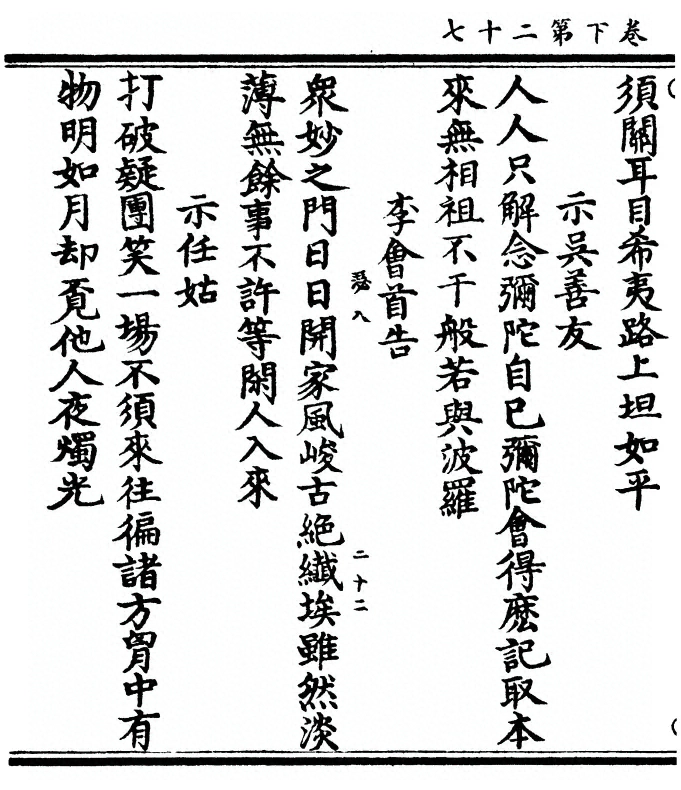 卷下第二十七
須關耳目希夷路上坦如平
示吳善友
人人只解念彌陀自己彌陀會得麽記取本
來無相祖不干般若與波羅
李會首告
瑟八 二十二
衆妙之門日日開家風峻古絶纖埃雖然淡
薄無餘事不許等閑人入來
示任姑
打破疑團笑一場不須來往徧諸方胷中有
物明如月却覔他人夜燭光